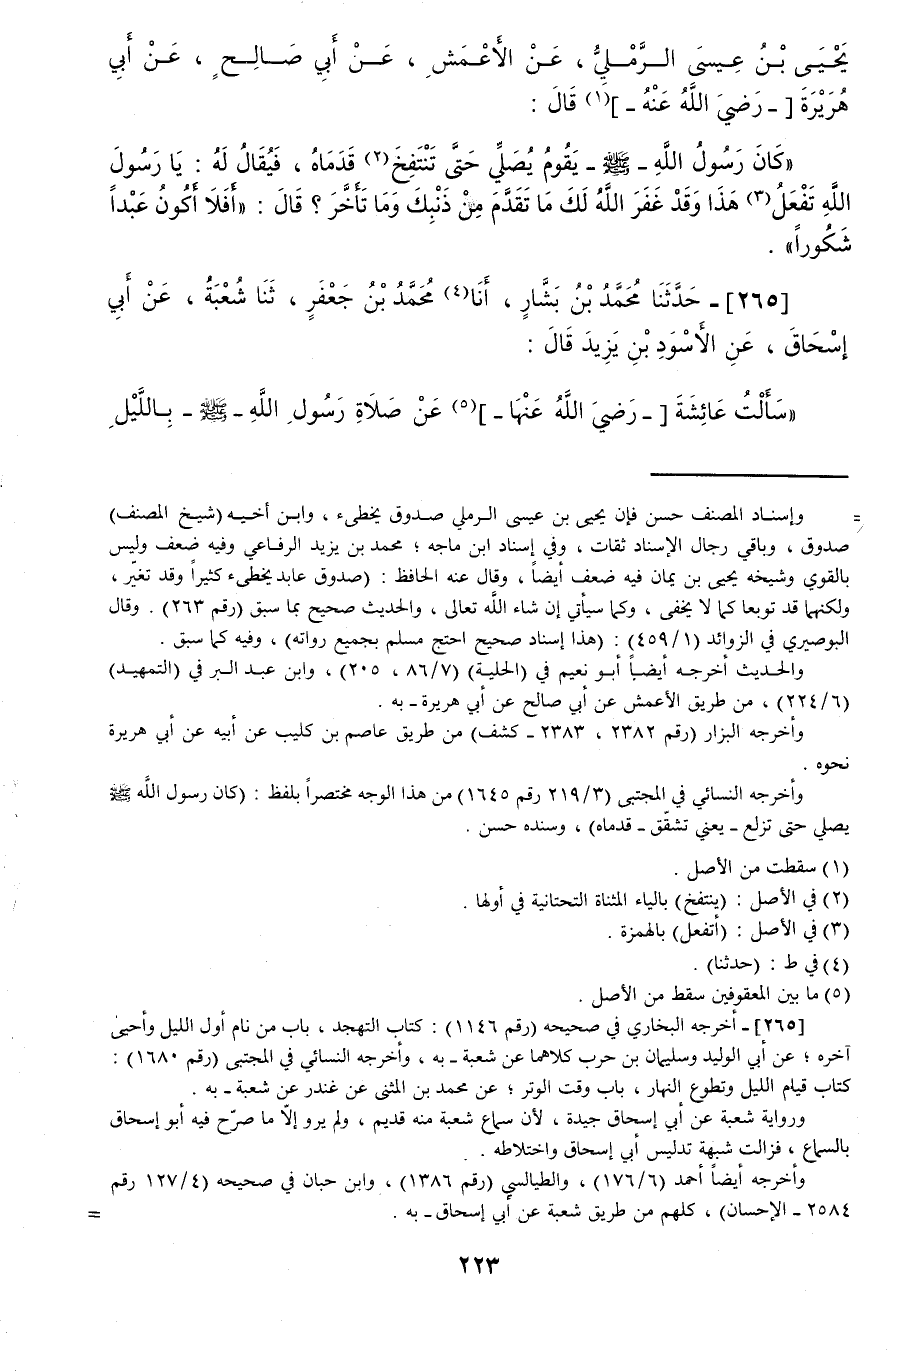 يَحْيَى بْنُ عِيسَى الرَّمْلِيُّ ، عَنْ الأَعْمَشِ ، عَنْ أَبِي صَالِحٍ ، عَنْ أَبِي
هُرَيْرَةَ [ - رَضِيَ اللَّهُ عَنْهُ - ](١) قَالَ :
«كَانَ رَسُولُ اللَّهِ - ﷺ - يَقُومُ يُصَلِّي حَتَّى تَنْتَفِخَ(٢) قَدَمَاهُ ، فَيُقَالُ لَهُ : يَا رَسُولَ
اللَّهِ تَفْعَلُ(٣) هَذَا وَقَدْ غَفَرَ اللَّهُ لَكَ مَا تَقَدَّمَ مِنْ ذَنْبِكَ وَمَا تَأَخَّرَ ؟ قَالَ : «أَفَلَا أَكُونُ عَبْداً
شَكُوراً» .
[٢٦٥] - حَدَّثَنَا مُحَمَّدُ بْنُ بَشَّارٍ ، أَنَا(٤) مُحَمَّدُ بْنُ جَعْفَرٍ ، ثَنَا شُعْبَةُ ، عَنْ أَبِي
إِسْحَاقَ ، عَنِ الأَسْوَدِ بْنِ يَزِيدَ قَالَ :
«سَأَلْتُ عَائِشَةَ [ - رَضِيَ اللَّهُ عَنْهَا - ](٥) عَنْ صَلَاةِ رَسُولِ اللَّهِ - ﷺ - بِاللَّيْلِ
= وإسناد المصنف حسن فإن يحيى بن عيسى الرملي صدوق يخطىء ، وابن أخيه (شيخ المصنف)
صدوق ، وباقي رجال الإسناد ثقات ، وفي إسناد ابن ماجه ؛ محمد بن يزيد الرفاعي وفيه ضعف وليس
بالقوي وشيخه يحيى بن يمان فيه ضعف أيضاً ، وقال عنه الحافظ : (صدوق عابد يخطىء كثيراً وقد تغيّر ،
ولكنهما قد توبعا كما لا يخفى ، وكما سيأتي إن شاء اللَّه تعالى ، والحديث صحيح بما سبق (رقم ٢٦٣) . وقال
البوصيري في الزوائد (١/ ٤٥٩) : (هذا إسناد صحيح احتج مسلم بجميع رواته) ، وفيه كما سبق .
والحديث أخرجه أيضاً أبو نعيم في (الحلية) (٧/ ٨٦ ، ٢٠٥) ، وابن عبد البر في (التمهيد)
(٦/ ٢٢٤) ، من طريق الأعمش عن أبي صالح عن أبي هريرة - به .
وأخرجه البزار (رقم ٢٣٨٢ ، ٢٣٨٣ - كشف) من طريق عاصم بن كليب عن أبيه عن أبي هريرة
نحوه .
وأخرجه النسائي في المجتبى (٣/ ٢١٩ رقم ١٦٤٥) من هذا الوجه مختصراً بلفظ : (كان رسول اللَّه ﷺ
يصلي حتى تزلع - يعني تشقّق - قدماه) ، وسنده حسن .
(١) سقطت من الأصل .
(٢) في الأصل : (ينتفخ) بالياء المثناة التحتانية في أولها .
(٣) في الأصل : (أتفعل) بالهمزة .
(٤) في ط : (حدثنا) .
(٥) ما بين المعقوفين سقط من الأصل .
[٢٦٥] - أخرجه البخاري في صحيحه (رقم ١١٤٦) : كتاب التهجد ، باب من نام أول الليل وأحيى
آخره ؛ عن أبي الوليد وسليمان بن حرب كلاهما عن شعبة - به ، وأخرجه النسائي في المجتبى (رقم ١٦٨٠) :
كتاب قيام الليل وتطوع النهار ، باب وقت الوتر ؛ عن محمد بن المثنى عن غندر عن شعبة - به .
ورواية شعبة عن أبي إسحاق جيدة ، لأن سماع شعبة منه قديم ، ولم يرو إلاّ ما صرّح فيه أبو إسحاق
بالسماع ، فزالت شبهة تدليس أبي إسحاق واختلاطه .
وأخرجه أيضاً أحمد (٦/ ١٧٦) ، والطيالسي (رقم ١٣٨٦) ، وابن حبان في صحيحه (٤/ ١٢٧ رقم
٢٥٨٤ - الإحسان) ، كلهم من طريق شعبة عن أبي إسحاق - به . =
٢٢٣